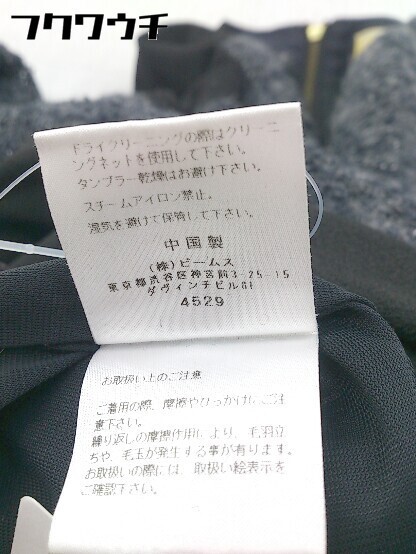 フクワウチ
ドライクリーニングの際はクリーニ
ングネットを使用して下さい。
タンブラー乾燥はお避け下さい。
スチームアイロン禁止。
湿気を避けて保管して下さい。
中国製
(株)ビームス
東京都渋谷区神宮前3-25-15
ダヴィンチビル6F
4529
お取扱い上のご注意
ご着用の際、摩擦やひっかけにご注
意下さい。
繰り返しの摩擦作用により、毛羽立
ちや、毛玉が発生する事が有ります。
お取扱いの際には、取扱い絵表示を
ご確認下さい。